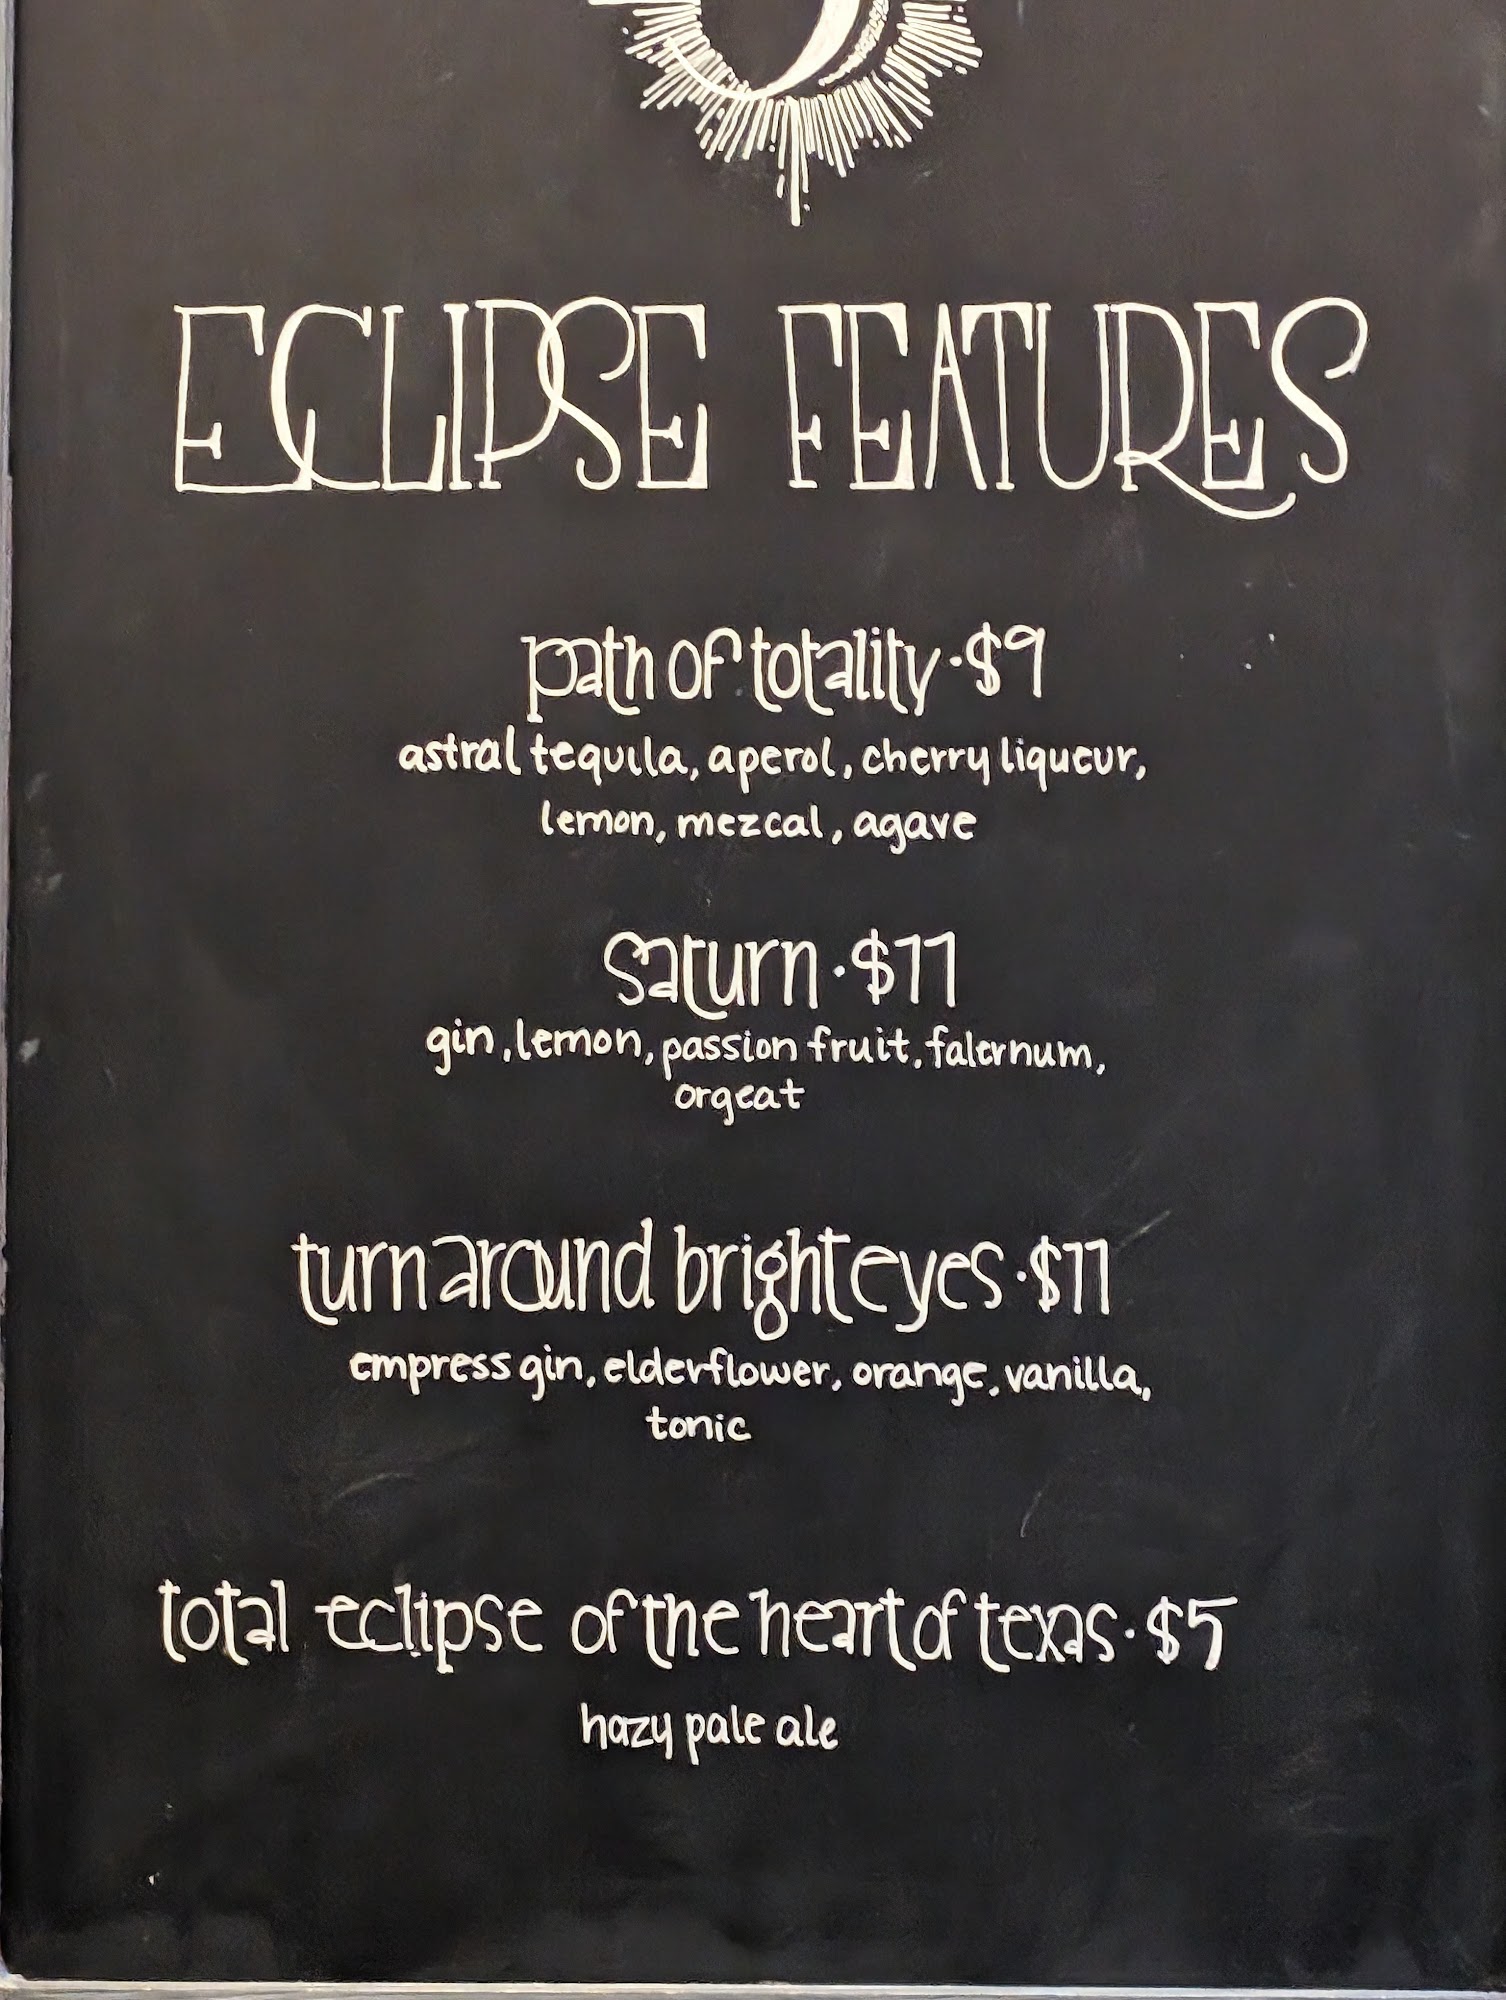 ECLIPSE FEATURES
path of totality · $9
astral tequila, aperol, cherry liqueur,
lemon, mezcal, agave
saturn · $11
gin, lemon, passion fruit, falernum,
orgeat
turn around bright eyes · $11
empress gin, elderflower, orange, vanilla,
tonic
total eclipse of the heart of texas · $5
hazy pale ale